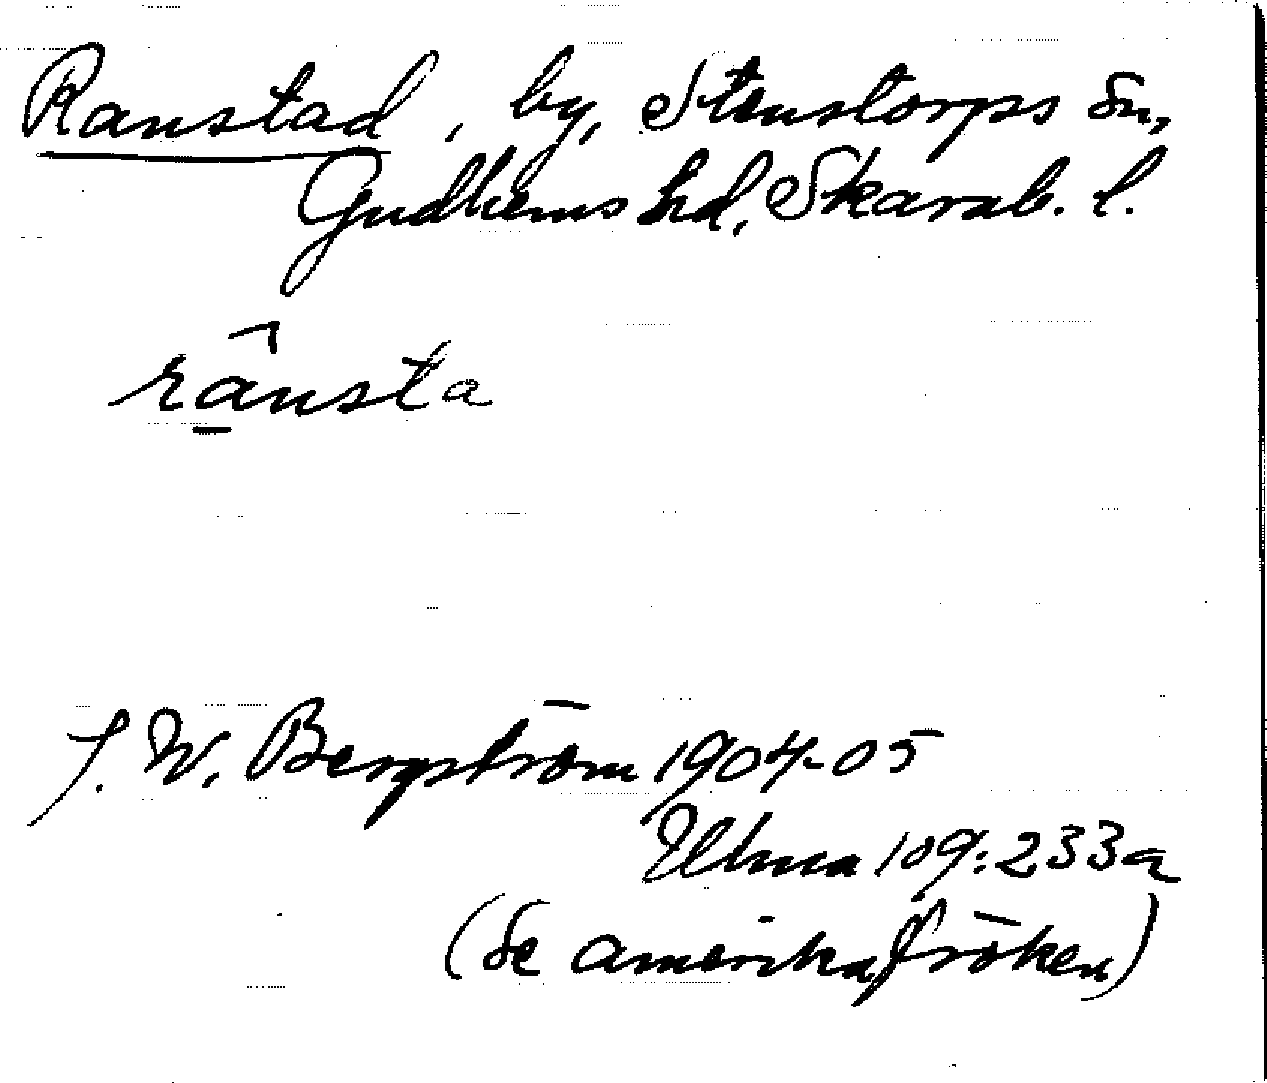 Ranstad, by, Stenstorps sn,
Gudhems hd, Skarab. l.
rânsta
J. W. Bergström 1904-05
Ulma 109:233a
(Se amerikafröken)